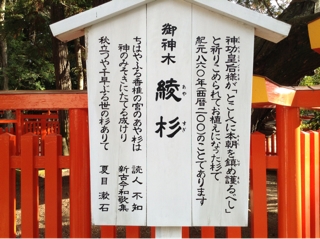 御神木
綾杉
あや
すぎ
神功皇后様が、「とこしへに本朝を鎮め護るべし」
と祈りこめられてお植えになった杉で
紀元八六〇年(西暦二〇〇)のことであります
ちはやふる香椎の宮のあや杉は
神のみそぎにたてる成けり
読人不知
新古今和歌集
秋立つや千早ふる世の杉ありて
夏目漱石